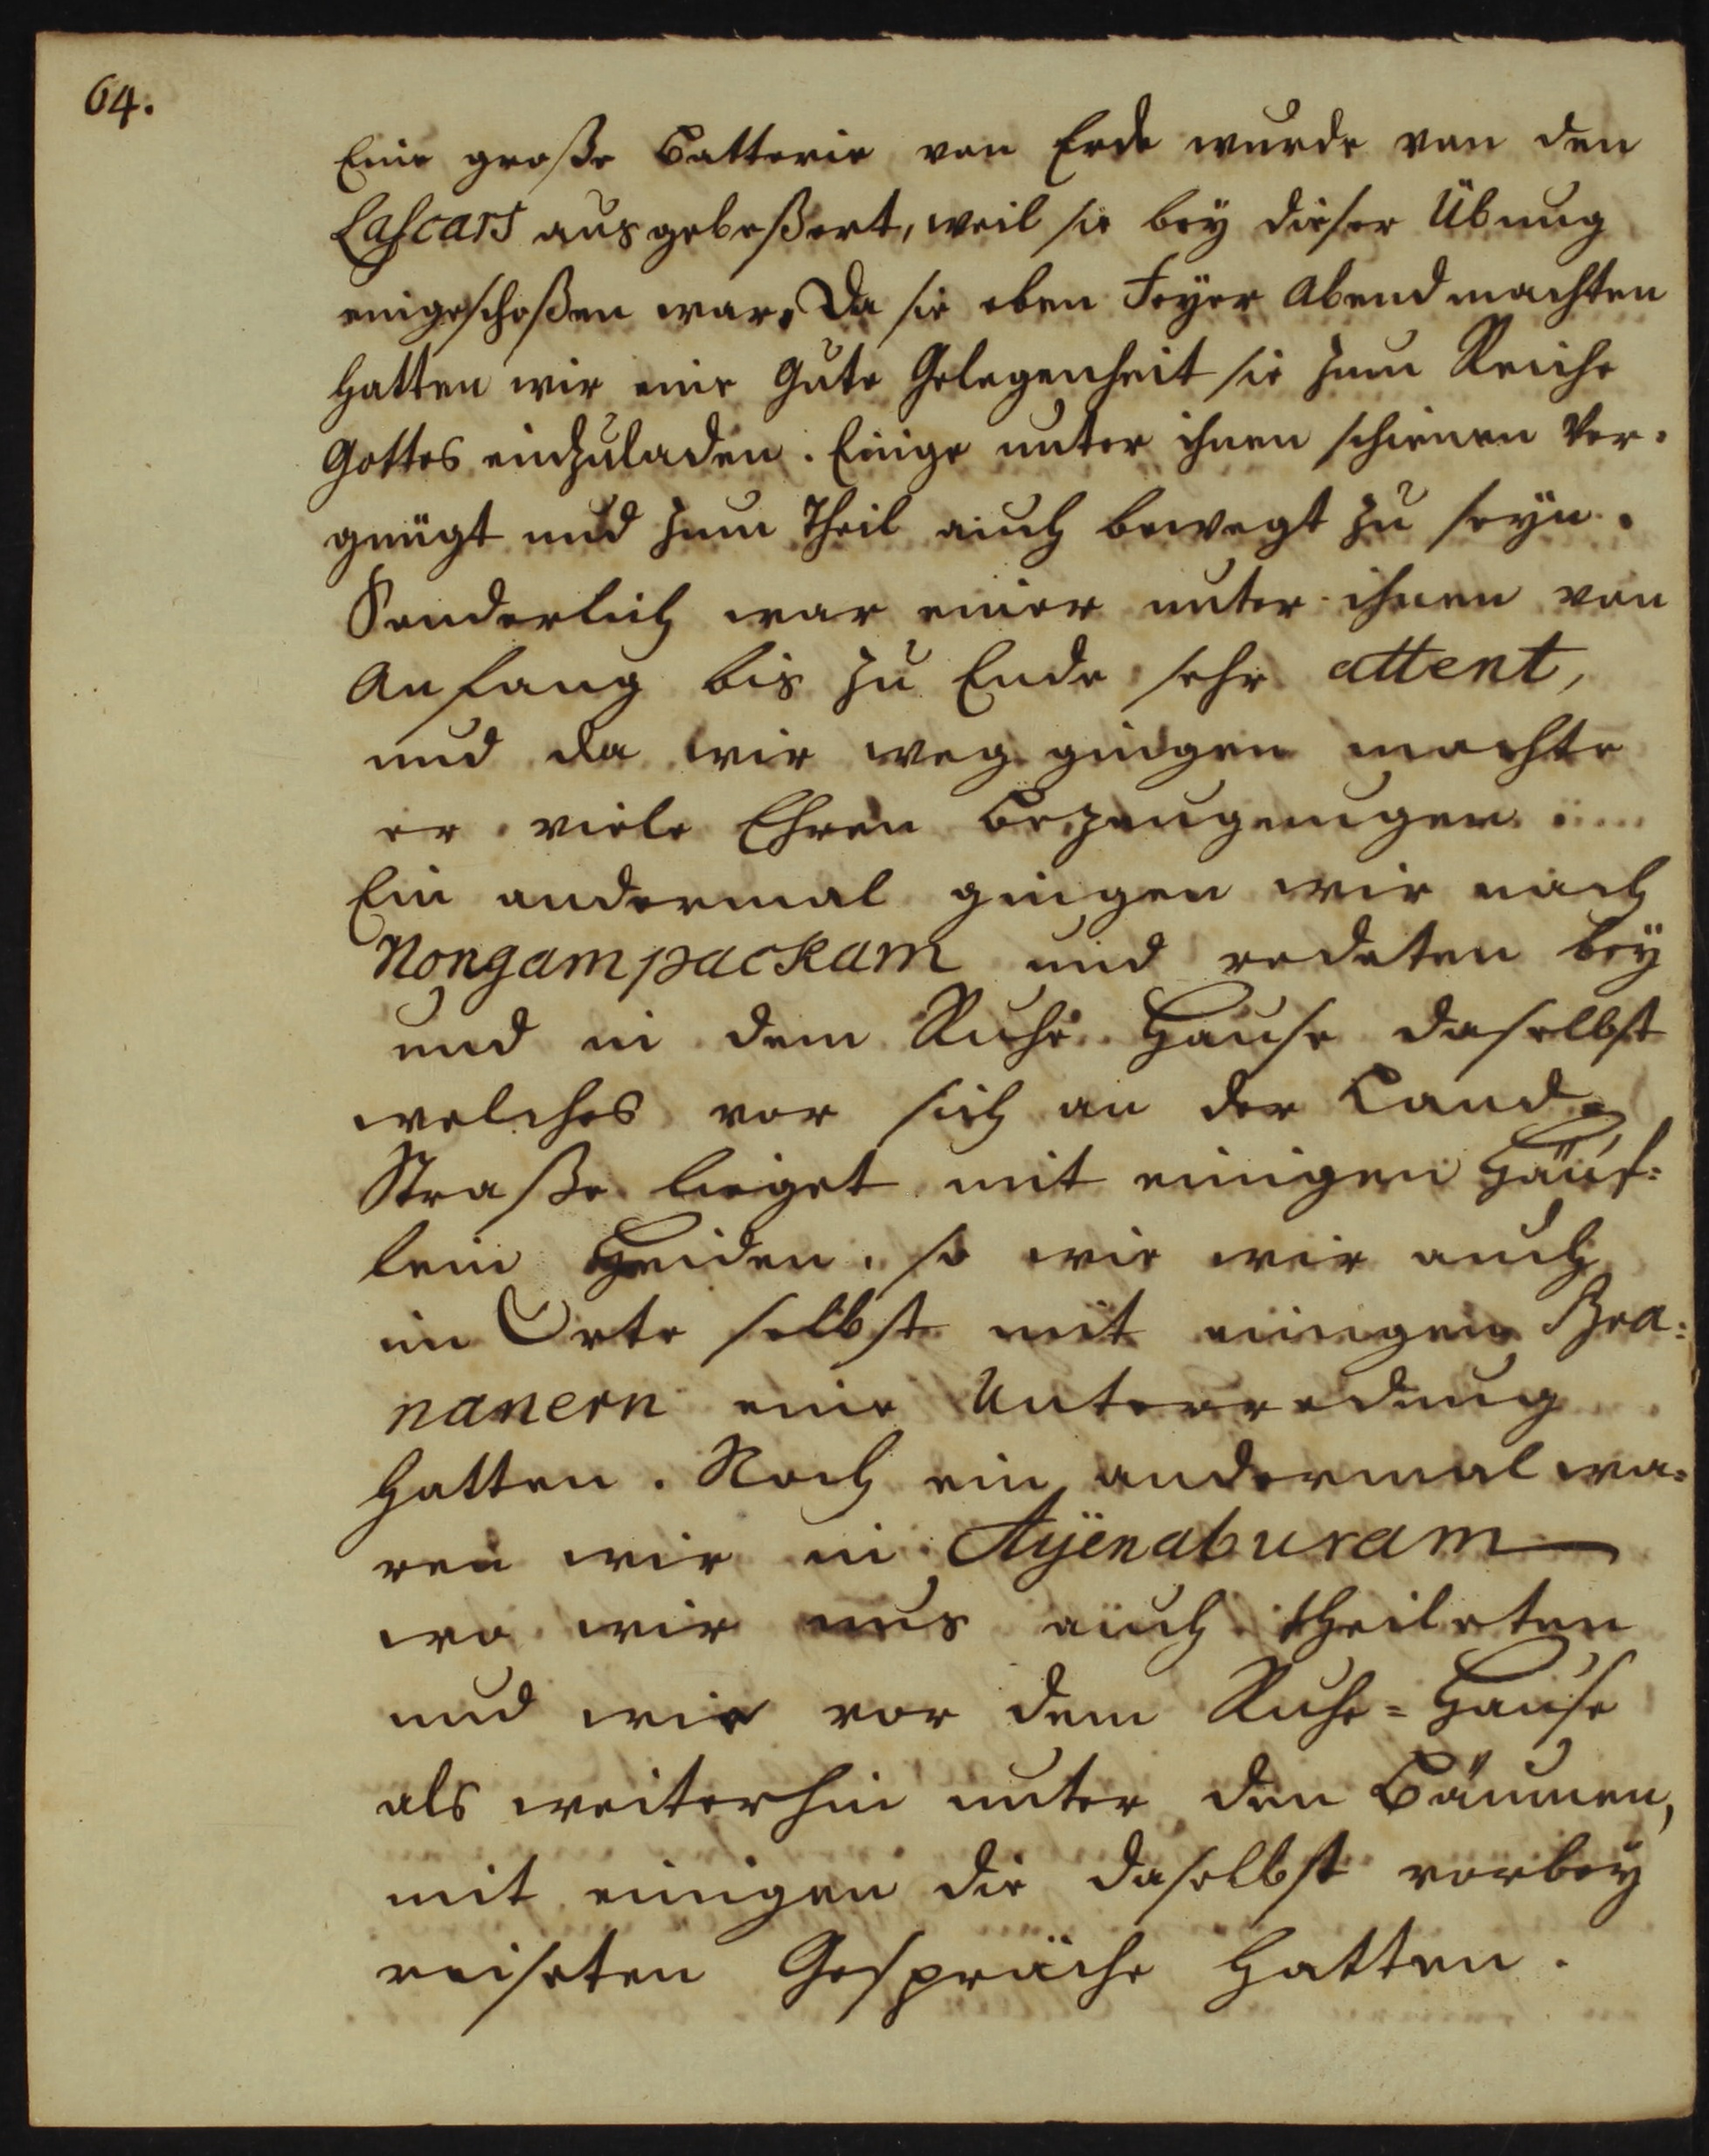 64.
Eine große Batterie von Erde wurde von den
Lascars ausgebeßert, weil sie bey dieser Übung
eingeschoßen war. Da sie eben Feyer Abend machten
hatten wir eine Gute Gelegenheit sie zum Reiche
Gottes einzuladen. Einige unter ihnen schienen Ver-
gnügt und zum Theil auch bewegt zu seyn.
Sonderlich war einer unter ihnen von
Anfang bis zu Ende sehr attent,
und da wir weg gingen machte
er viele Ehren Bezeugungen.
Ein andermal gingen wir nach
Nongampackam und redeten bey
und in dem Ruhe Hause daselbst
welches vor sich an der Land-
Straße lieget mit einigen Häuf-
lein Heiden. so wie wir auch
im Orte selbst mit einigen Bra-
nanern eine Unterredung
hatten. Noch ein andermal wa-
ren wir in Ayenaburam
wo wir uns auch theileten
und wir vor dem Ruhe-Hause
als weiterhin unter den Bäumen,
mit einigen die daselbst vorbey
reiseten Gespräche hatten.